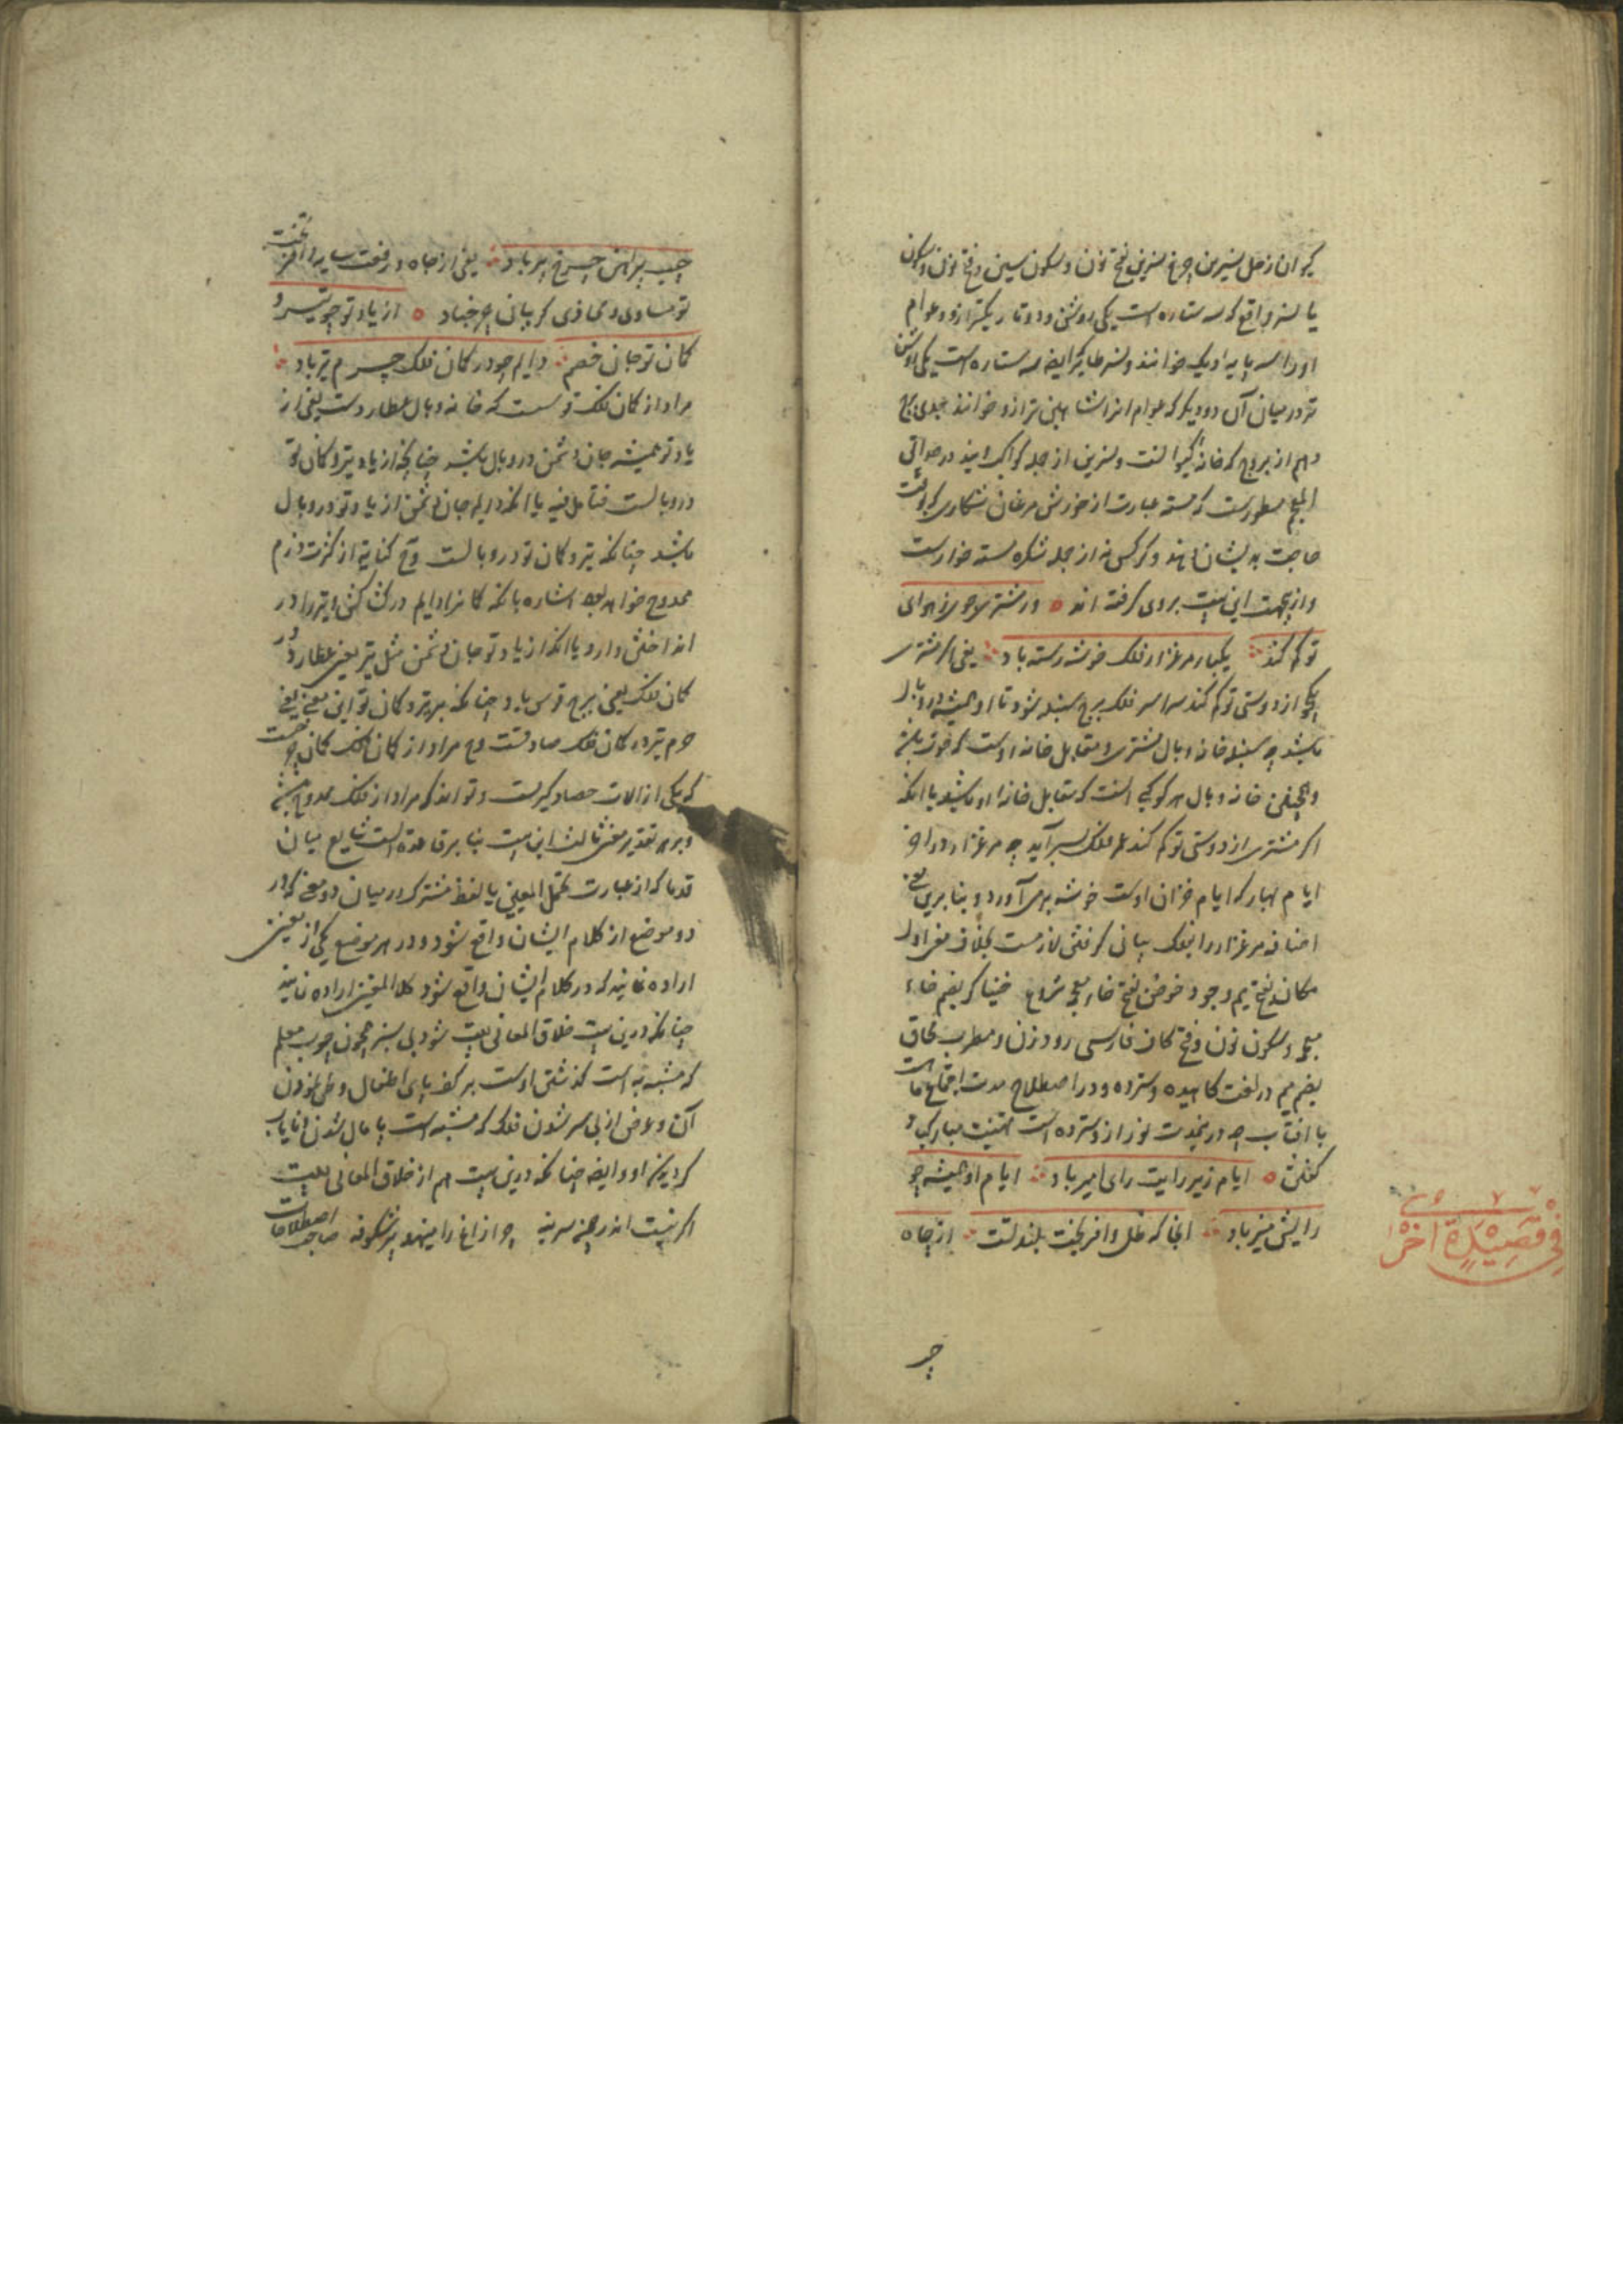 کیوان زحل نسرین چرخ نسرین بفتح نون و سکون سین و فتح نون و سکون
یا نسر واقع که سه ستاره است یکی روشن و دو تاریکتر ازو و عوام
او را سه پایه دیک خوانند و نسر طایر که ایضا سه ستاره است یکی روشن
تر در میان آن دو دیگر که عوام انرا شاهین ترازو خوانند جدی برج
دهم از بروج که خانه کیوانست و نسرین از جمله کواکب اویند در حواشی
مسطورست که مسته عبارت از خورش مرغان شکاری که وقت
حاجت بدیشان دهند و کرکس نه از جمله شکره مسته خوارست
و ازینجهت این بیت بروی گرفته اند ور مشتری جوی ز هوای
تو کم کند یکبار مرغزار فلک خوشه رسته باد یعنی اگر مشتری
یکجو از دوستی تو کم کند سراسر فلک برج سنبله شود تا او همیشه در وبال
باشد چه سنبله خانه وبال مشتری و مقابل خانه اوست که حوت باشد
و همچنین خانه وبال هر کوکبی انست که مقابل خانه او باشد یا انکه
اگر مشتری از دوستی تو کم کند عمر فلک بسر آید چه مرغزار در اخر
ایام بهار که ایام خزان اوست خوشه برمی آورد و بنابرین معنی
اضافه مرغزار را بفلک بیانی گرفتن لازمست بخلاف معنی اول
مکاند بفتح میم وجود خوض بفتح خاء معجمه شروع خنیاگر بضم خاء
معجمه و سکون نون و فتح کاف فارسی رودزن و مطرب محاق
بضم میم در لغت کاهیده و سترده و در اصطلاح مدت اجتماع ماهست
با افتاب چه درینمدت نور ازو سترده است تهنیت مبارکی
گفتن ایام زیر رایت رای امیر باد ایام او همیشه چو
رایش منیر باد انجا که ظل وافر بخت بلند تست از جاه
فی قصیدة اخری
جیب
جیب پیرهن چرخ امیر باد یعنی از جاه و رفعت سایه وافر بخت
تو مساوی و محاذی گریبان چرخ باد از یاد تو چو تیر و
کمان تو جان خصم دایم چو در کمان فلک جرم تیر باد
مراد از کمان فلک قوسست که خانه وبال عطاردست یعنی از
یاد تو همیشه جان دشمن در وبال باشد چنانچه از یاد تیر و کمان تو
در وبالست فتامل فیه یا انکه دایم جان دشمن از یاد تو در وبال
باشد چنانکه تیر و کمان تو در وبالست وح کنایة از کثرت رزم
ممدوح خواهد بود اشاره بانکه کمانرا دایم در کشاکش و تیر را در
انداختن دارد یا انکه از یاد تو جان دشمن مثل تیر یعنی عطارد در
کمان فلک یعنی برج قوس باد چنانکه بر تیر و کمان تو این معنی یعنی
جرم تیر در کمان فلک صادقست وح مراد از کمان فلک کمان چرخست
که یکی از الات حصارگیریست و تواند که مراد از فلک ممدوح باشد
و بر هر تقدیر معنی ثالث این بیت بنابر قاعده است شایع میان
قدما که از عبارت محتمل المعنیین یا لفظ مشترک در میان دو معنی که در
دو موضع از کلام ایشان واقع شود و در هر موضع یکی از معنیین
اراده نمایند که در کلام ایشان واقع شود کلا المعنیین اراده نمایند
چنانکه درین بیت خلاق المعانی بیت شود بی سر همچون چوب معلم
که مشبه به است گذشتن اوست بر کف پای اطفال
آن و غرض از بی سر شدن فلک که مشبه است پایمال شدن و نایاب
گردیدن او و ایضا چنانکه درین بیت هم از خلاق المعانی بیت
اگر نیست اندر چمن سر بنه چرا زاغ را مینهد پر شکوفه صاحب اصطلاحات